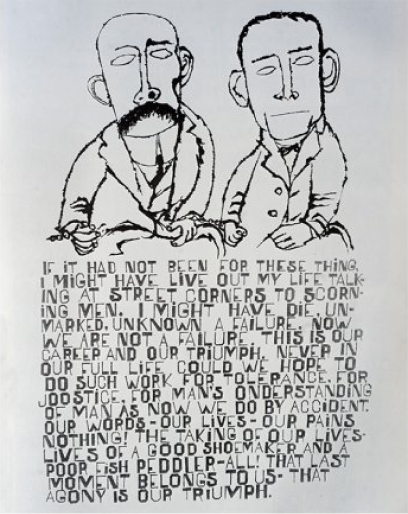 IF IT HAD NOT BEEN FOR THESE THING,
I MIGHT HAVE LIVE OUT MY LIFE TALK-
ING AT STREET CORNERS TO SCORN-
ING MEN. I MIGHT HAVE DIE, UN-
MARKED, UNKNOWN A FAILURE. NOW
WE ARE NOT A FAILURE. THIS IS OUR
CAREER AND OUR TRIUMPH. NEVER IN
OUR FULL LIFE COULD WE HOPE TO
DO SUCH WORK FOR TOLERANCE, FOR
JOOSTICE, FOR MAN'S ONDERSTANDING
OF MAN AS NOW WE DO BY ACCIDENT.
OUR WORDS-OUR LIVES-OUR PAINS
NOTHING! THE TAKING OF OUR LIVES-
LIVES OF A GOOD SHOEMAKER AND A
POOR FISH PEDDLER-ALL! THAT LAST
MOMENT BELONGS TO US-THAT
AGONY IS OUR TRIUMPH.